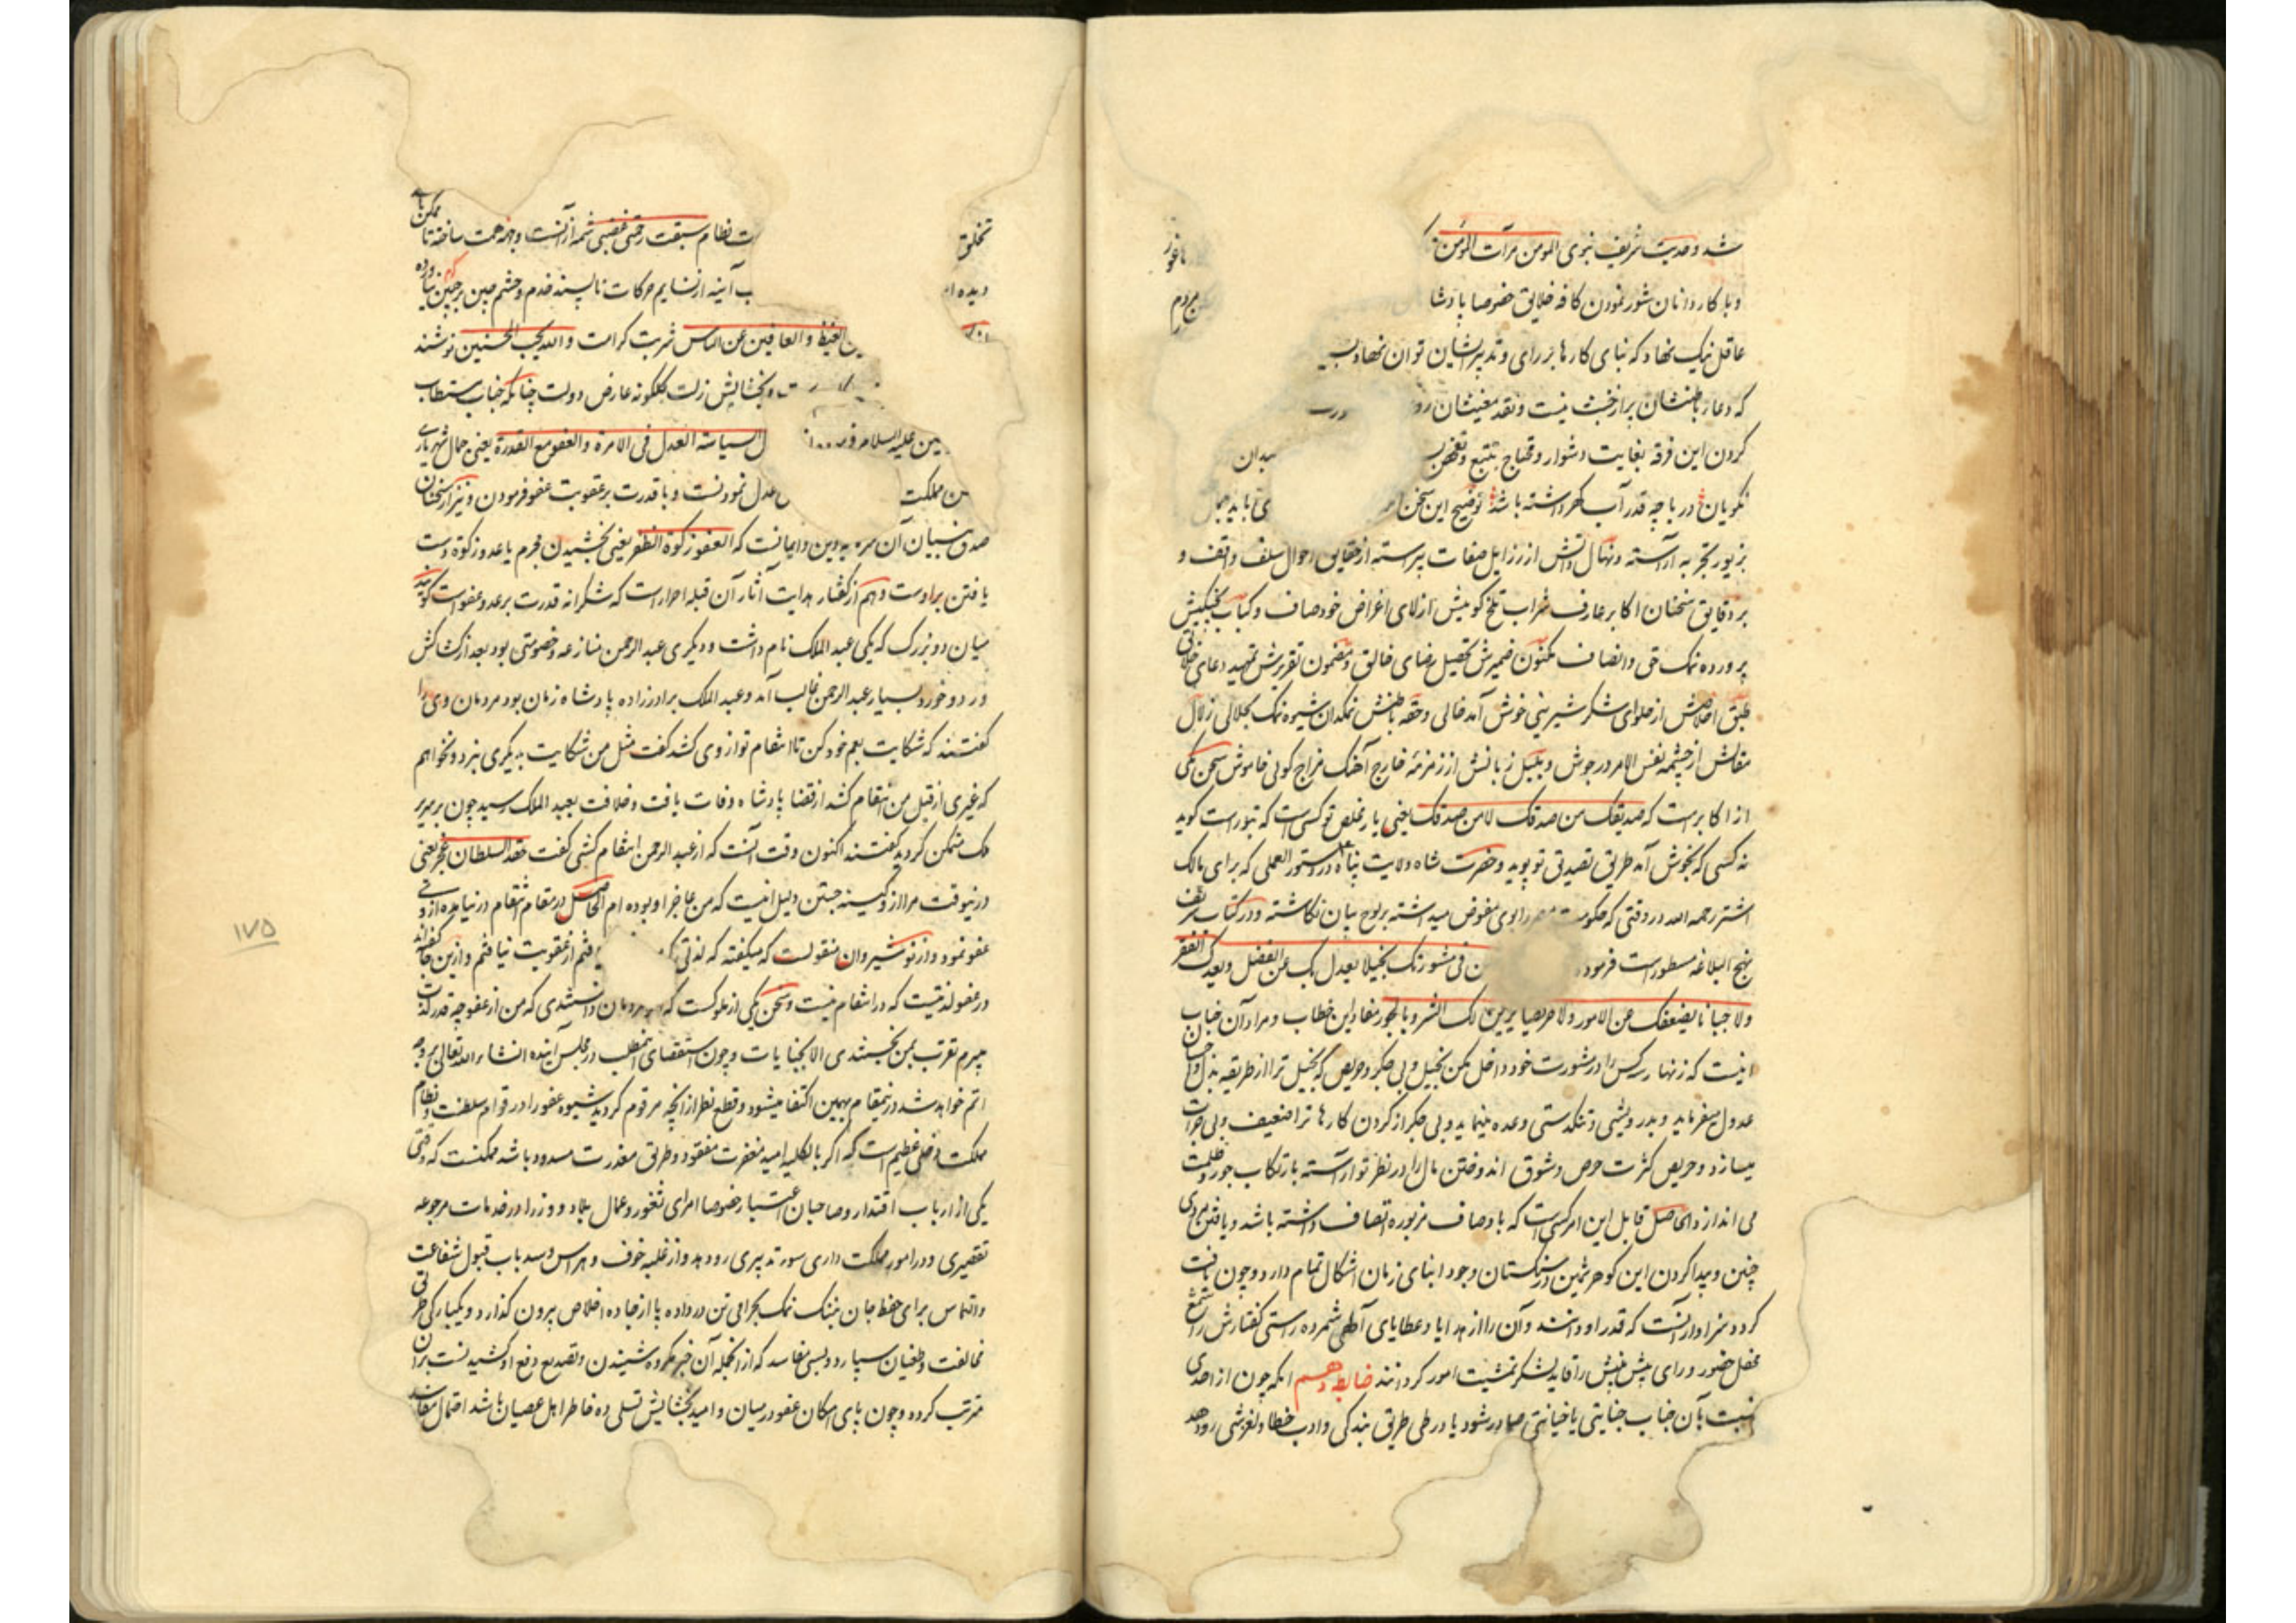 شد و حدیث شریف نبوی المومن مرآت المومن
و با کاردانان شور نمودن کافه خلایق خصوصا پادشا مردم
عاقل نیک نهاد که بنای کارها بر رای و تدبیر ایشان توان نهاد بسیا
که دعار باطنشان براز خبث نیست و نقد معنیشان رو
کردن این فرقه بغایت دشوار و محتاج بتتبع و تفحص میدان
نکویان در باچه قدر آب کهر داشته باشد توضیح این سخن می باید
بزیور تجربه آراسته و نهال دانش از رزایل صفات پیراسته از حقایق احوال سلف واقف و
بر دقایق سخنان اکابر عارف شراب تلخ کوییش از لای اغراض خود صاف و کباب نجیکیش
پرورده نمک حق و انصاف مکنون ضمیرش تحصیل رضای خالق و مضمون تقریرش تمهید دعای خلایق
طبق اخلاصش از حلوای شکر شیرینی خوش آمد خالی و حقه باطنش نمکدان شیوه نمک بحلالی زلال
مقالش از چشمه نفس الامر در جوش و بلبل زبانش از زمزمه خارج آهنک مزاج کوئی خاموش سخن یکی
از اکابرست که صدیقک من صدقک لا من صدقک یعنی یار مخلص تو کسی است که بتو راست کوید
نه کسی که بخوش آمد طریق تصدیق تو پوید و حضرت شاه ولایت پناه در دستور العملی که برای مالک
اشتر رحمه الله در وقتی که حکومت مصر را بوی مفوض میداشته بر لوح بیان نکاشته و در کتاب شریف
نهج البلاغه مسطور است فرموده ن فی مشورتک بخیلا یعدل بک عن الفضل و یعدک الفقر
و لا جبانا یضعفک عن الامور و لا حریصا یزین لک الشره بالجور مفاد این خطاب و مراد آن جناب
اینست که زنهار سه کس را در مشورت خود داخل مکن بخیل و بی جکر و حریص که بخیل ترا از طریقه بذل و احسان
عدول میفرماید و بدرویشی و تنکدستی وعده مینماید و بی جکر از کردن کارها ترا ضعیف و بی جرات
میسازد و حریص کثرت حرص و شوق اندوختن مال را در نظر تو آراسته بارتکاب جور و ظلمت
می اندازد و الحاصل قابل این امر کسی است که باوصاف مزبوره اتصاف داشته باشد و یافتن مردی
چنین و پیدا کردن این کوهر ثمین در سنکستان وجود ابنای زمان اشکال تمام دارد و چون یافت
کردد سزاوار آنست که قدر او دانند و آن را از هدایا و عطایای آلهی شمرده راستی کفتارش را شمع
محفل حضور و رای پیش بینش را قاید لشکر تمشیت امور کردانند ضابطه دهم آنکه چون از احدی
نسبت بآن جناب جنایتی یا خیانتی صادر شود یا در طی طریق بندکی و ادب خطا و لغزشی رو دهد
تخلق ت نظام سبقت رحمتی غضبی شمه از آنست وجهه همت ساخته تا ممکن باشد
دیده ا ب آینه از نشایم حرکات ناپسند خدم و حشم چین بر جبین نیاورده
ن الغیظ و العافین عن الناس شربت کرامت و الله یحب المحسنین نوشند
ت و بخشایش زلت کلکونه عارض دولت چنانکه جناب مستطاب
علیه السلام فرموده ل السیاسة العدل فی الامرة و العفو مع القدرة یعنی جمال شهریاری
ن مملکت عدل نمودنست و با قدرت بر عقوبت عفو فرمودن و نیز از سخنان
صدق بنیان آن سرور دین و ایمانست که العفو زکوة الظفر یعنی بخشیدن مجرم یا عدو زکوة دست
یافتن بر اوست و هم از کفتار هدایت آثار آن قبله احرار است که شکرانه قدرت بر عدو عفو است کویند
میان دو بزرک که یکی عبد الملک نام داشت و دیکری عبد الرحمن منازعه و خصومتی بود بعد از کشاکش
و زد و خورد بسیار عبد الرحمن غالب آمد و عبد الملک برادرزاده پادشاه زمان بود مردمان وی را
کفتند که شکایت بعم خود کن تا انتقام تو از وی کشد کفت مثل من شکایت بدیکری نبرد و نخواهم
که غیری از قبل من انتقام کشد از قضا پادشاه وفات یافت و خلافت بعبد الملک رسید چون بر سریر
ملک متمکن کردید کفتند اکنون وقت آنست که از عبد الرحمن انتقام کشی کفت حقد السلطان عجز یعنی
درینوقت مرا از و کینه جستن دلیل اینست که من عاجز او بوده ام الحاصل در مقام انتقام در نیامده از وی
عفو نمود و از نوشیروان منقولست که میکفته که لذتی که یافتم از عقوبت نیافتم و ازین جا کفته اند
در عفو لذتیست که در انتقام نیست و سخن یکی از ملوکست که مردمان دانستندی که من از عفو چه قدر لذت
میبرم تقرب بمن نجستندی الا بجنایات و چون استقصای این مطلب در مجلس آینده انشاء الله تعالی بر وجه
اتم خواهد شد درینمقام بهمین اکتفا میشود و قطع نظر از آنچه مرقوم کردید شیوه عفو را در قوام سلطنت و نظام
مملکت دخلی عظیم است که اکر بالکلیه امید مغفرت مفقود و طریق معذرت مسدود باشد ممکنست که وقتی
یکی از ارباب اقتدار و صاحبان اعتبار خصوصا امرای ثغور و عمال بلاد و وزرا در خدمات مرجوعه
تقصیری و در امور مملکت داری سوء تدبیری رو دهد و از غلبه خوف و هراس و سد باب قبول شفاعت
و التماس برای حفظ جان بننک نمک بحرامی تن در داده پا از جاده اخلاص بیرون کذارد و یکبارکی طریق
مخالفت و طغیان سپارد و بسی مفاسد که از انجمله آن خبر مکروه شنیدن و تصدیع دفع او کشیدنست بران
مترتب کردد و چون پای امکان عفو در میان و امید بخشایش تسلی ده خاطر اهل عصیان باشد احتمال مفاسد
۱۷۵